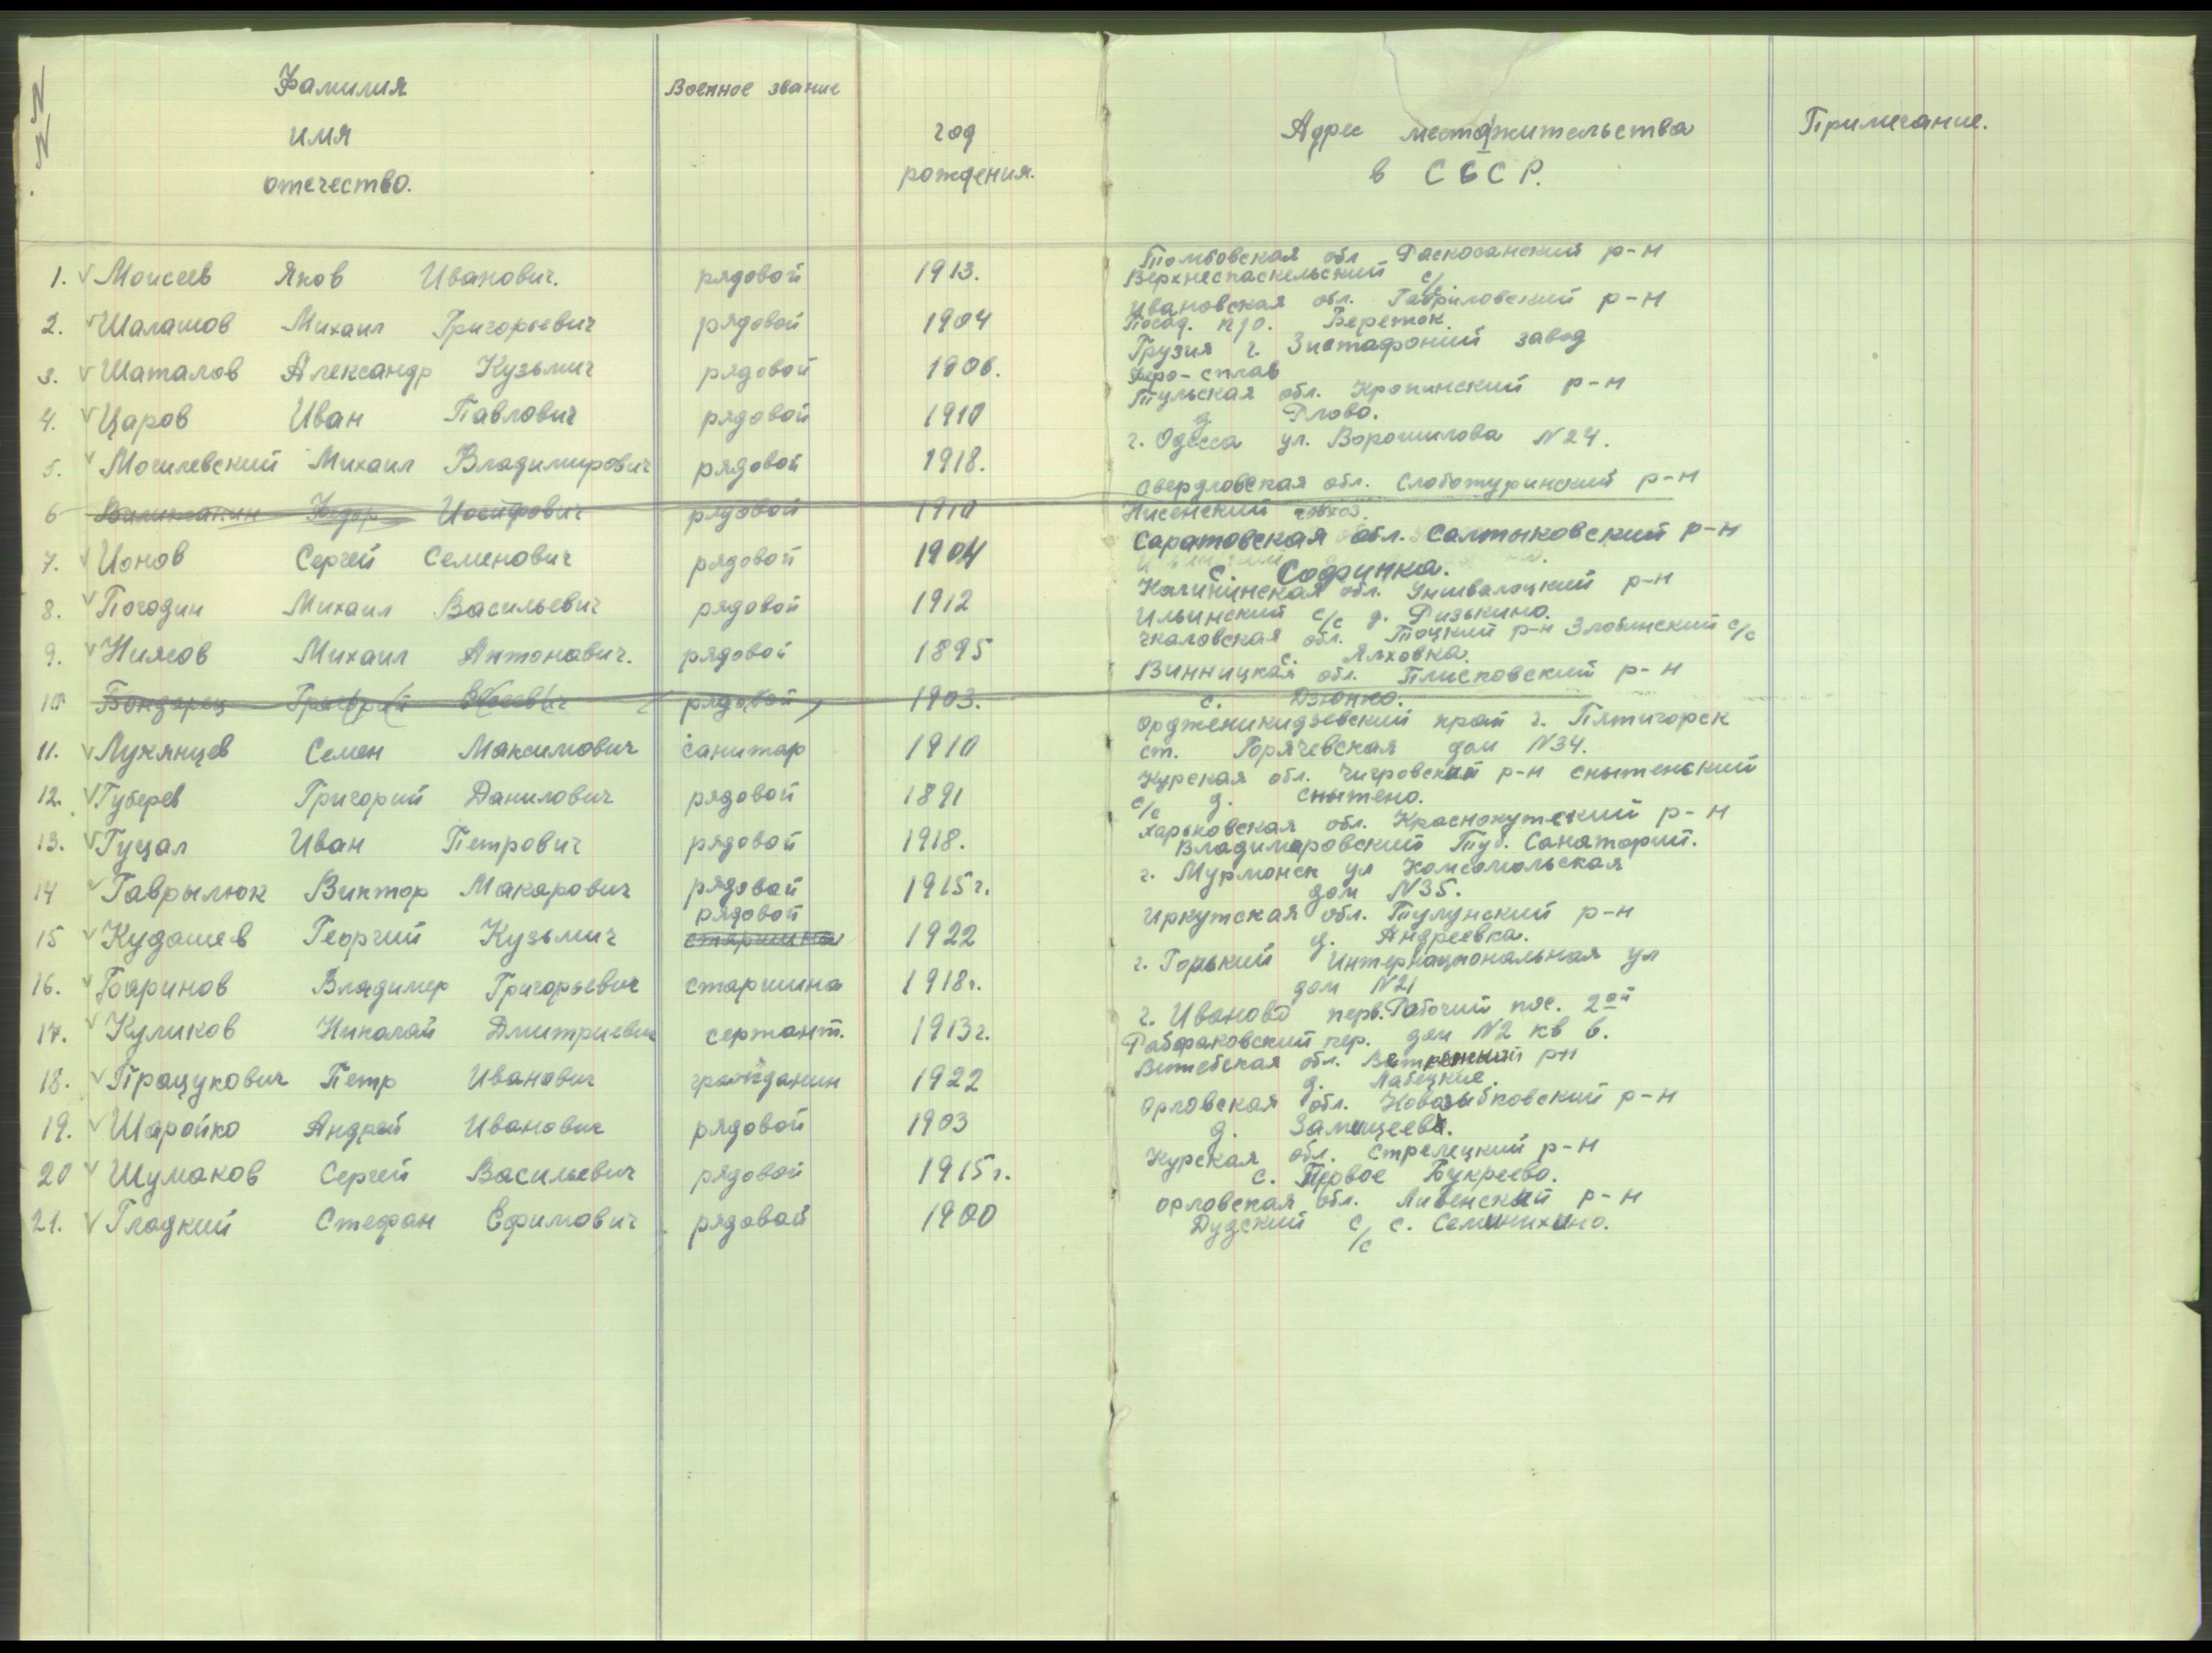 N N
Фамилия
имя
отчество.
Военное звание
год
рождения.
Адрес местажительства
в СССР.
Примечание.
1. Моисеев Яков Иванович. рядовой 1913. Томбовская обл Раскосанский р-н
Верхнеспаскельский с/с.
2. Шалашов Михаил Григорьевич рядовой 1904 Ивановская обл. Гавриловский р-н
Посад. п/о. Береток.
3. Шаталов Александр Кузьмич рядовой 1906. Грузия г. Зистафоний завод
Феро-сплав
4. Царов Иван Павлович рядовой 1910 Тульская обл. Кропинский р-н
д. Рлово.
5. Могилевский Михаил Владимирович рядовой 1918. г. Одесса ул. Ворошилова N24.
6 Иосифович рядовой 1910 Свердловская обл. Слаботуринский р-н
Нисенский совхоз.
7. Ионов Сергей Семенович рядовой 1904 Саратовская обл. Салтыковский р-н
с. Софинка.
8. Погодин Михаил Васильевич рядовой 1912 Калининская обл. р-н
Ильинский с/с д. Физькино.
9. Ниясов Михаил Антонович. рядовой 1895 Чкаловская обл. Тоцкий р-н Злобинский с/с
с. Ялховка.
10 Бондарец Григорий рядовой 1903. Винницкая обл. Плисковский р-н
с. Дзюнко.
11. Лукянцев Семен Максимович санитар 1910 Ордженикидзевский край г. Пятигорск
ст. Горячевская дом N34.
12. Губерев Григорий Данилович рядовой 1891 Курская обл. Чигровский р-н снытенский
с/с д. снытено.
13. Гуцал Иван Петрович рядовой 1918. Харьковская обл. Краснокутский р-н
Владимаровский Туб. Санаторий.
14 Гаврылюк Виктор Макарович рядовой 1915г. г. Мурмонск ул Комсомольская
дом N35.
15 Кудашев Георгий Кузьмич рядовой старшина 1922 Иркутская обл. Тулунский р-н
д. Андреевка.
16. Бояринов Владимир Григорьевич старшина 1918г. г. Горький Интернациональная ул
дом N21
17. Куликов Николай Дмитриевич сержант. 1913г. г. Иваново перв. Рабочий пос. 2ой
Рабфаковский пер. дом N2 кв 6.
18. Працукович Петр Иванович гражданин 1922 Витебская обл. рн
д. Лабецкие.
19. Шаройко Андрей Иванович рядовой 1903 Орловская обл. Новозыбковский р-н
д. Замищеева.
20 Шумаков Сергей Васильевич рядовой 1915г. Курская обл. Стрелецкий р-н
с. Первое Букреево.
21. Гладкий Стефан Ефимович рядовой 1900 Орловская обл. Ливенский р-н
Дудский с/с с. Семинихино.